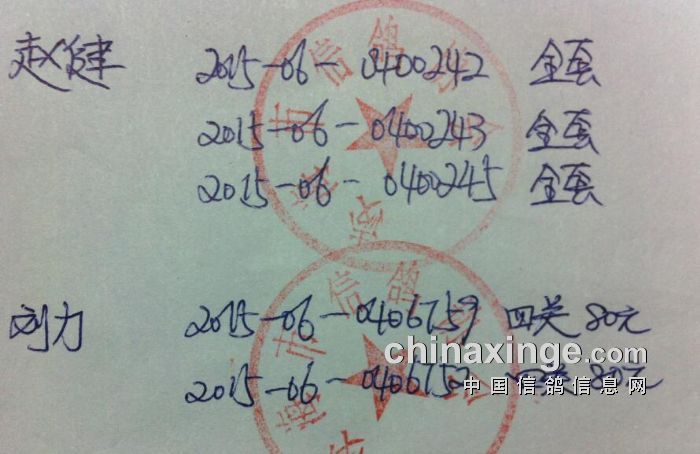 赵健 2015-06-0400242 全套
2015-06-0400243 全套
2015-06-0400245 全套
刘力 2015-06-0406759 四关 80元
2015-06-0406752 四关 80元
chinaxinge.com
中国信鸽信息网
市信鸽协会
市信鸽